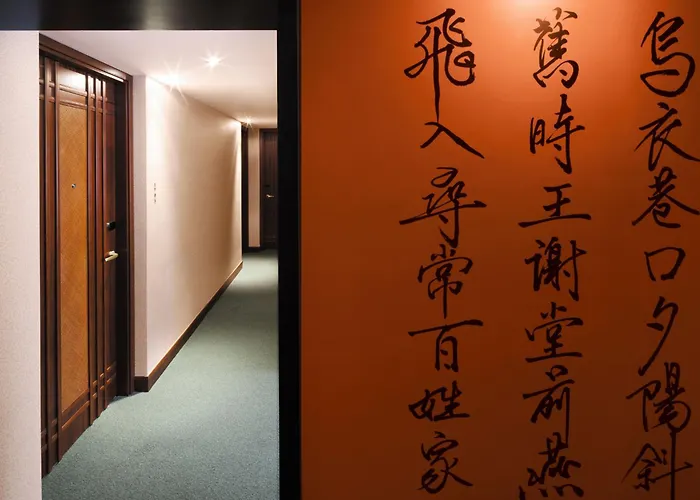 烏衣巷口夕陽斜
舊時王謝堂前燕
飛入尋常百姓家